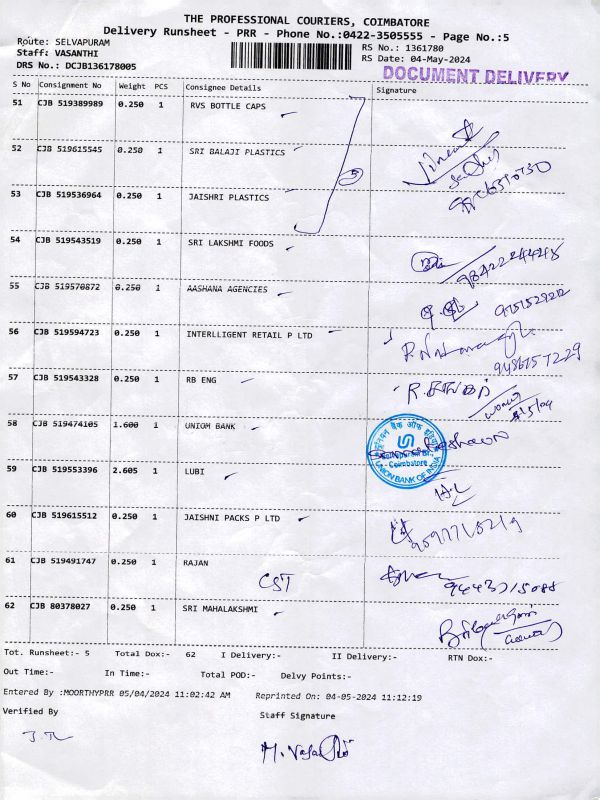 THE PROFESSIONAL COURIERS, COIMBATORE
Delivery Runsheet - PRR - Phone No.:0422-3505555 - Page No.:5
Route: SELVAPURAM
RS No.: 1361780
Staff: VASANTHI
RS Date: 04-May-2024
DRS No.: DCJB136178005
DOCUMENT DELIVERY
S No Consignment No Weight PCS Consignee Details Signature
51 CJB 519389989 0.250 1 RVS BOTTLE CAPS
52 CJB 519615545 0.250 1 SRI BALAJI PLASTICS
53 CJB 519536964 0.250 1 JAISHRI PLASTICS
54 CJB 519543519 0.250 1 SRI LAKSHMI FOODS
9842224448
55 CJB 519570872 0.250 1 AASHANA AGENCIES
56 CJB 519594723 0.250 1 INTERLLIGENT RETAIL P LTD
9486757229
57 CJB 519543328 0.250 1 RB ENG
58 CJB 519474105 1.600 1 UNIOM BANK
यूनियन बैंक ऑफ इंडिया
Coimbatore
UNION BANK OF INDIA
59 CJB 519553396 2.605 1 LUBI
60 CJB 519615512 0.250 1 JAISHNI PACKS P LTD
61 CJB 519491747 0.250 1 RAJAN
CST
9443715088
62 CJB 80378027 0.250 1 SRI MAHALAKSHMI
Tot. Runsheet:- 5 Total Dox:- 62 I Delivery:- II Delivery:- RTN Dox:-
Out Time:- In Time:- Total POD:- Delvy Points:-
Entered By :MOORTHYPRR 05/04/2024 11:02:42 AM Reprinted On: 04-05-2024 11:12:19
Verified By Staff Signature